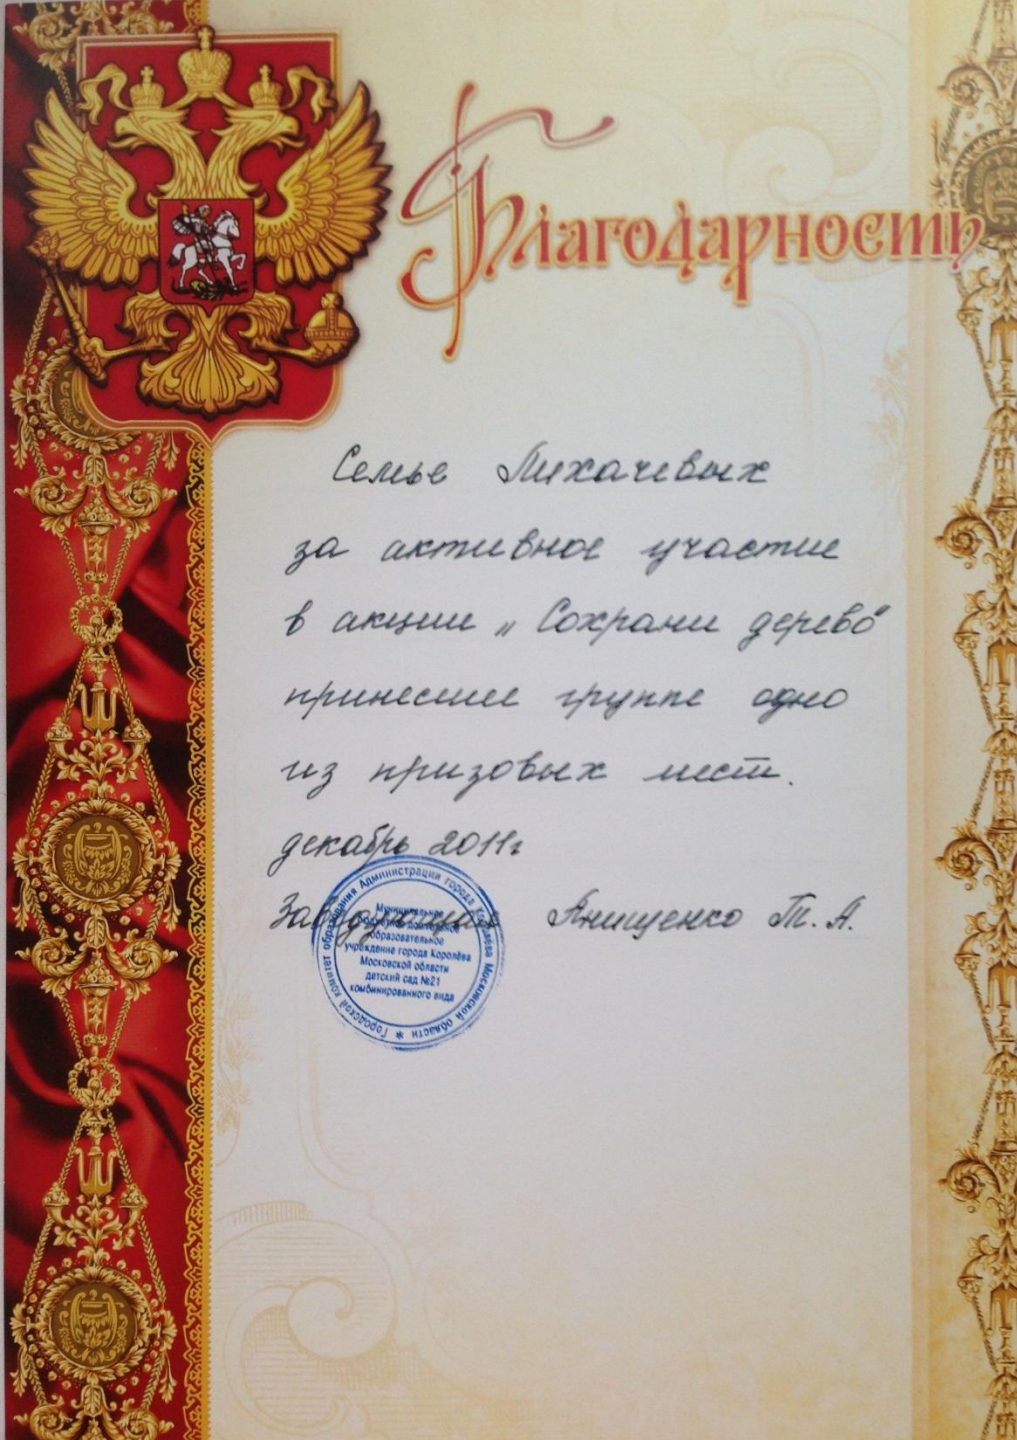 Благодарность
Семье Лихачевых
за активное участие
в акции „Сохрани дерево"
принесшее группе одно
из призовых мест.
декабрь 2011г
Заведующая Анищенко Т. А.
Городской комитет образования Администрации города Королёва Московской области *
Муниципальное
бюджетное дошкольное
образовательное
учреждение города Королёва
Московской области
детский сад №21
комбинированного вида